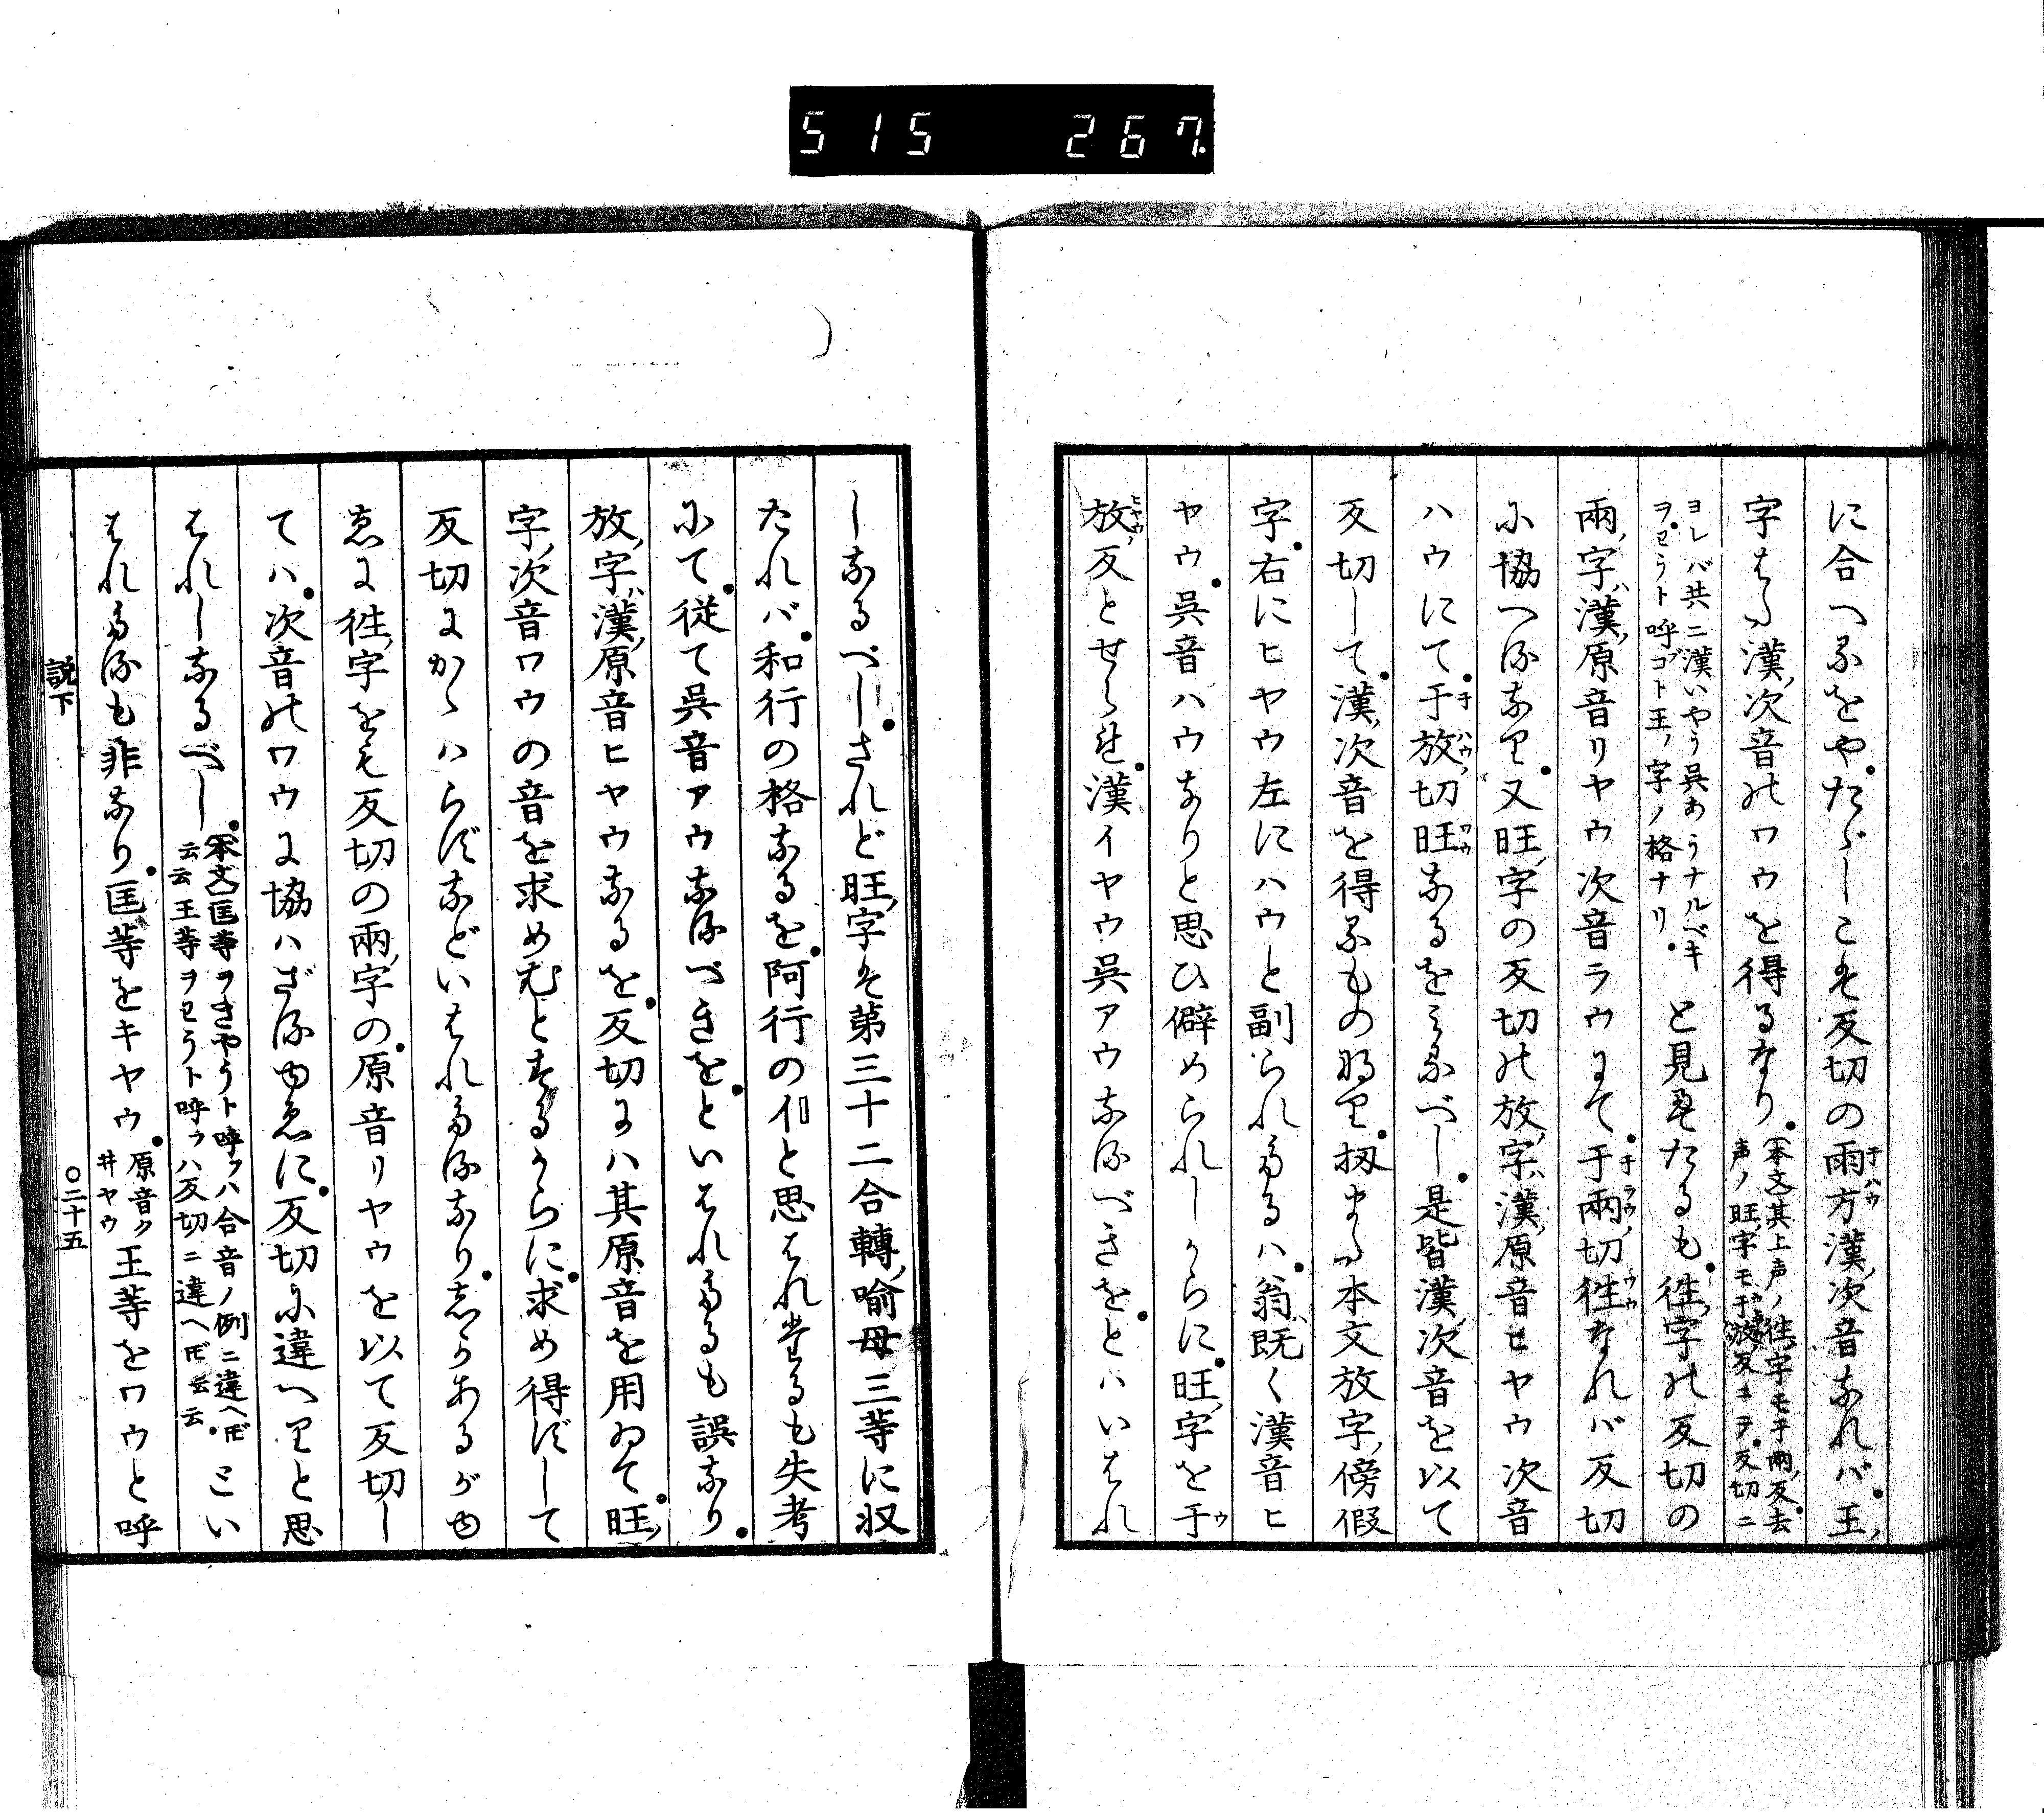 515 267
に合へるをや。たゞしこそ反切の雨方漢次音なれバ。王ノ
字はた漢次音のワウを得るなり。本文其上声ノ往字モ于兩ノ反。去
声ノ旺字モ于放反ナラ。反切ニ
ヨレバ共ニ漢いやう呉あうナルベキ
ヲ。わうト呼ブコト王ノ字ノ格ナリ。と見えたるも。往ノ字の反切の
兩ノ字ハ漢ノ原音リヤウ次音ラウにて。于兩ノ切往なれバ反切
に協へるなり。又旺ノ字の反切の放ノ字ハ漢ノ原音ヒヤウ次音
ハウにて。于放ノ切旺なるをみるべし。是皆漢ノ次音を以て
反切して。漢ノ次音を得るものなり。扨また本文放ノ字ノ傍假
字。右にヒヤウ左にハウと副られたるハ。翁ハ既く漢音ヒ
ヤウ。呉音ハウなりと思ひ僻められしからに。旺ノ字を于
放ノ反とせられ。漢イヤウ呉アウなるべきを。とハいはれ
しなるべし。されど旺ノ字は第三十二合轉ノ喻母三等に収
たれバ。和行の格なるを。阿行の伊と思はれたるも失考
にて。従て呉音アウなるべきを。といはれたるも誤なり。
放ノ字ハ漢ノ原音ヒヤウなるを。反切にハ其原音を用ゐて。旺ノ
字ノ次音ワウの音を求めむとするからに。求め得ずして
反切にかゝハらずなどいはれたるなり。しかあるがゆ
ゑに往ノ字をも反切の兩ノ字の。原音リヤウを以て反切し
てハ。次音のワウに協ハざるゆゑに。反切に違へりと思
はれしなるべし。本文匡等ヲきやうト呼フハ合音ノ例ニ違ヘㇳ゙モ
云云王等ヲわうト呼フハ反切ニ違ヘㇳ゙モ云云。とい
はれたるも非なり。匡等をキヤウ。原音ク
ヰヤウ王等をワウと呼
説下 ○二十五